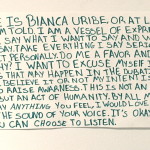 E IS BIANCA URIBE, OR AT LE
M TOLD I AM A VESSEL OF EXPR
SAY WHAT I WANT TO SAY AND W
SAY. TAKE EVERYTHING I SAY SERIO
T PERSONALLY. DO ME A FAVOR AND
HY? I WANT TO EXCUSE MYSELF
S THAT MAY HAPPEN IN THE DURAT
BELIEVE IT OR NOT MY INTENT IS
O RAISE AWARNESS. THIS IS NOT AN
BUT AN ACT OF HUMANITY. BY ALL M
AY ANYTHING YOU FEEL, I WOULD LOVE
THE SOUND OF YOUR VOICE. IT'S OKAY
OU CAN CHOOSE TO LISTEN.